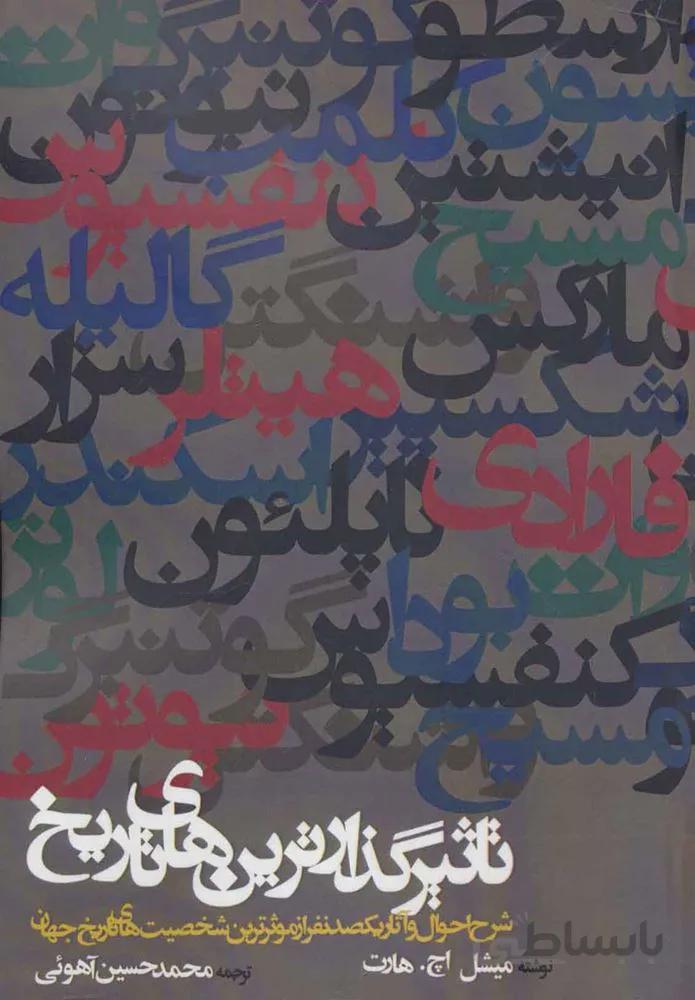 ارسطو گوتنبرگ وات
نیوتن ادیسون
کلمب
انیشتین
کنفسیوس
مسیح
گالیله
واشنگتن
مارکس
هیتلر سزار
شکسپیر
اسکندر
فارادی
ناپلئون
لوتر
وات
بودا
گوتنبرگ
کنفسیوس
نیوتن
مسیح واشنگتن
تاثیرگذارترین‌های تاریخ
شرح احوال و آثار یکصد نفر از موثرترین شخصیت‌های تاریخ جهان
نوشته میشل اچ. هارت ترجمه محمدحسین آهوئی
بابساطی